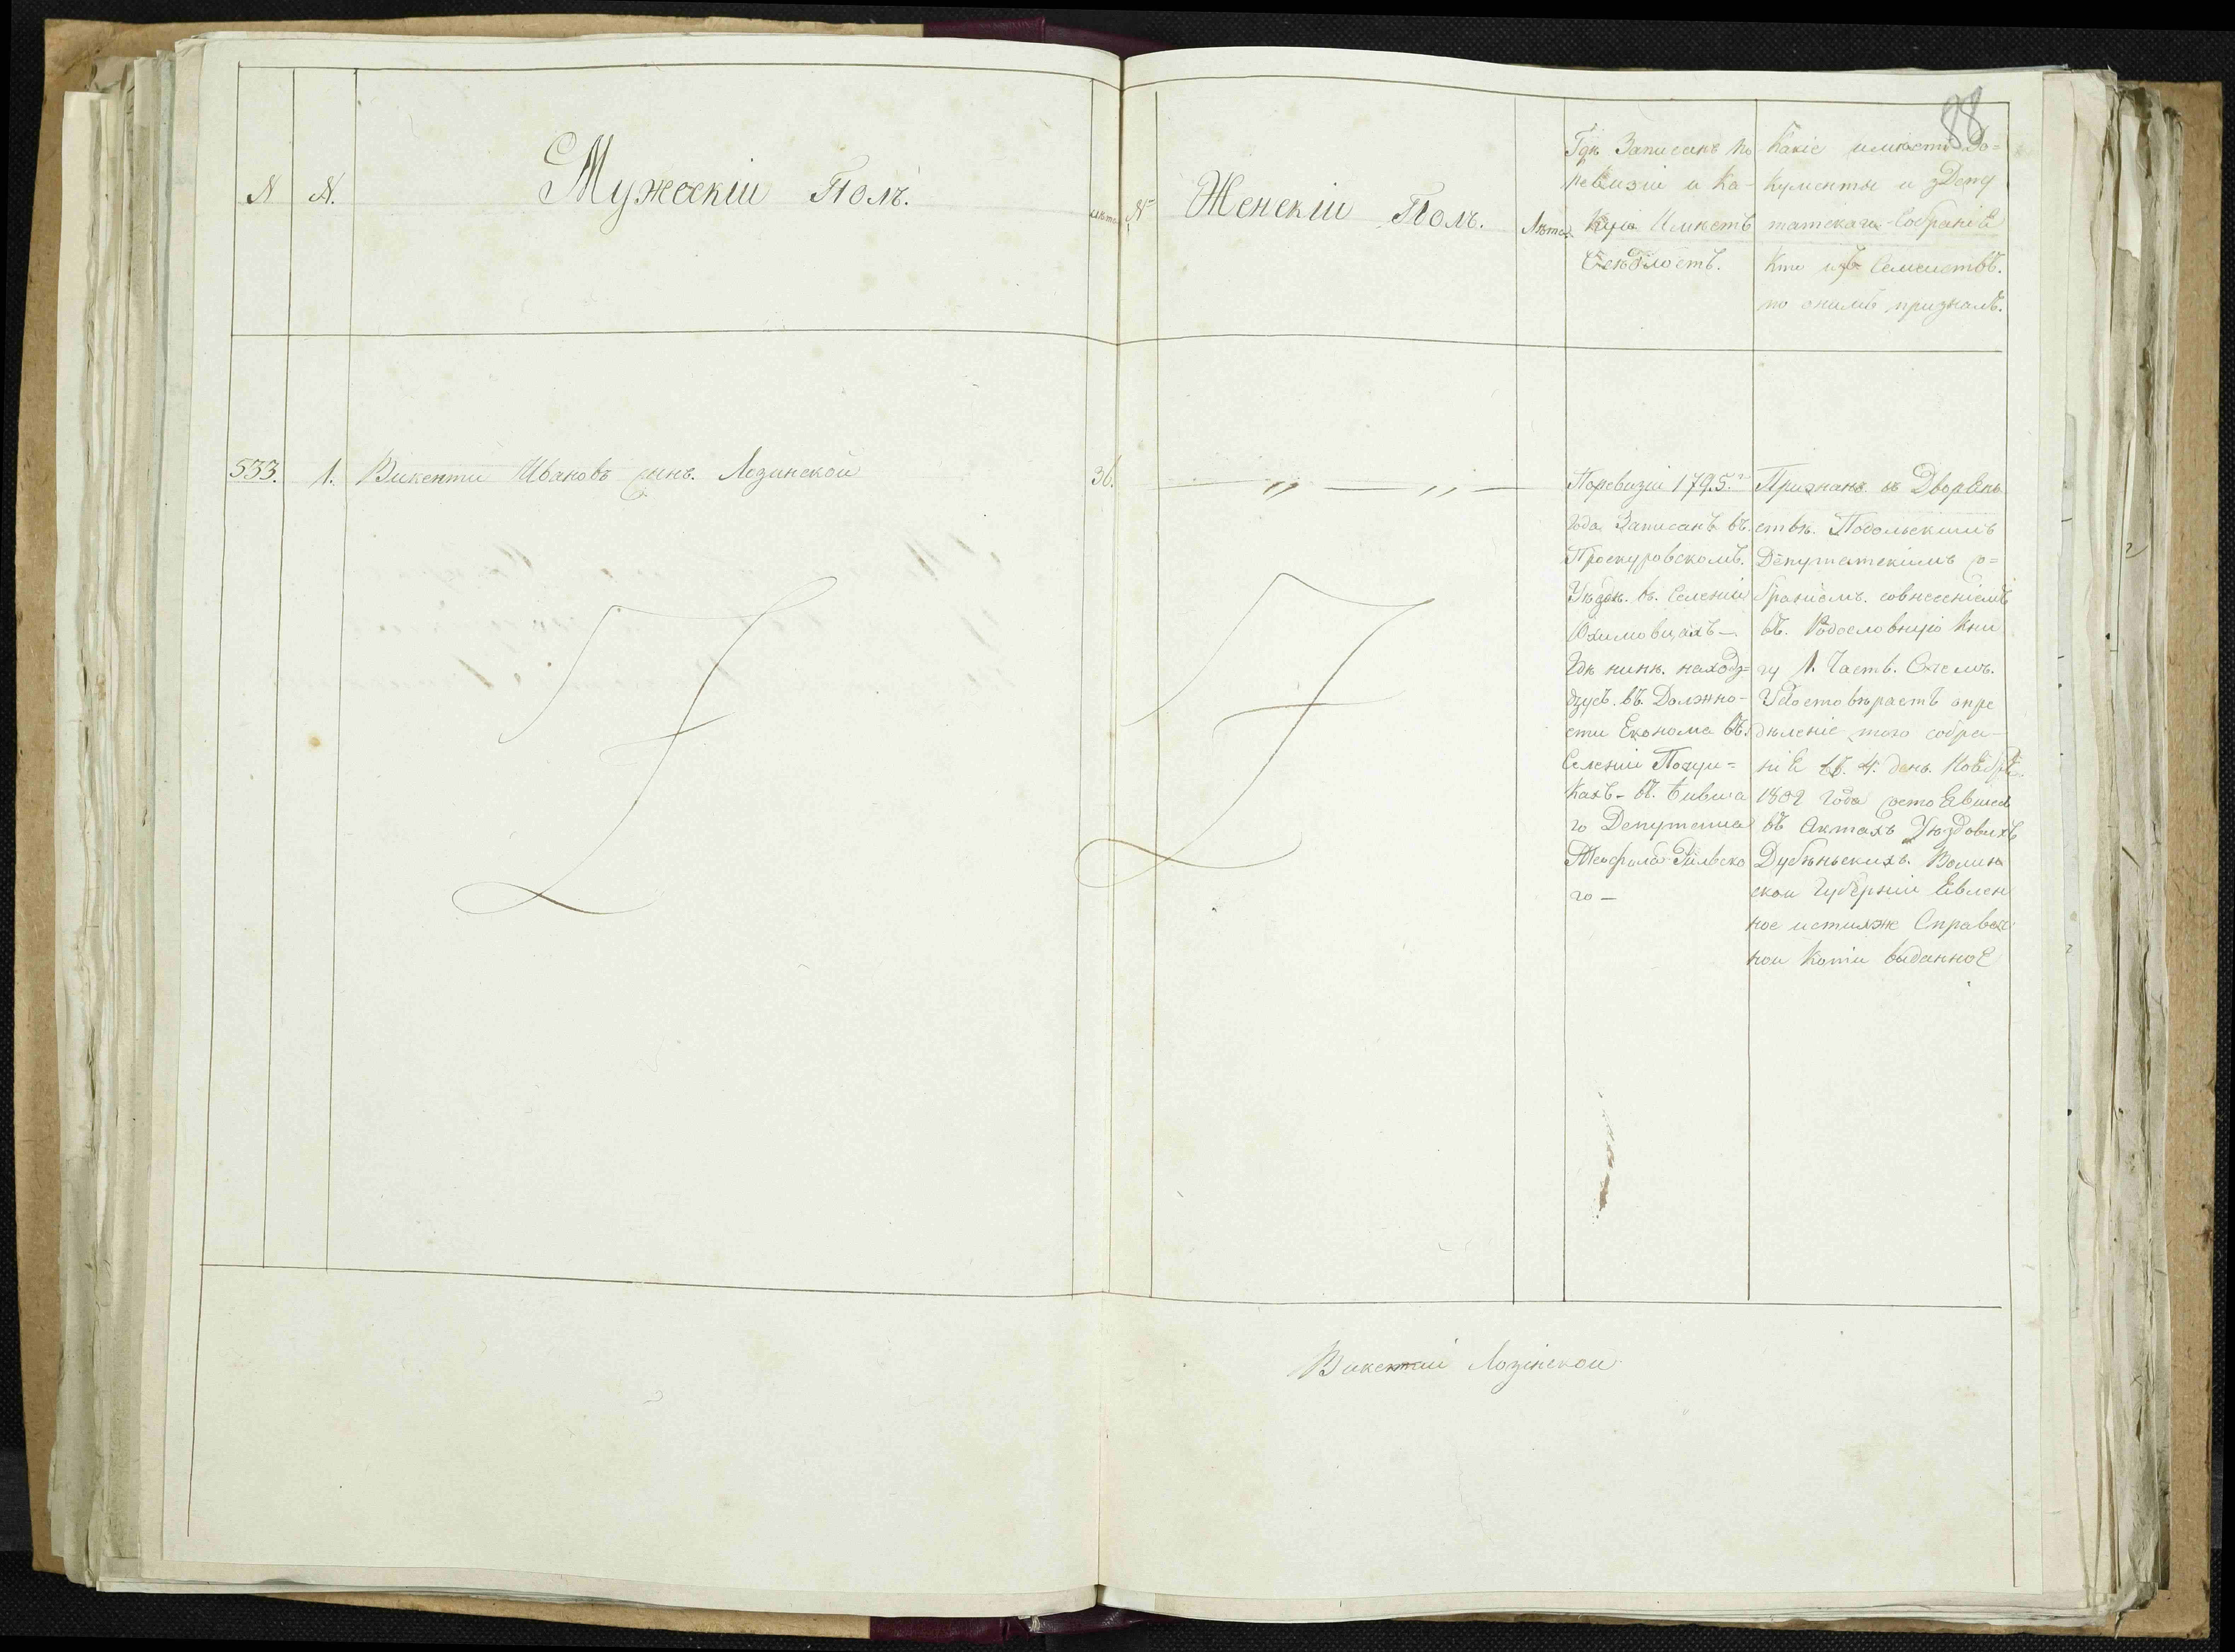 88
N
N.
Мужескій Полъ.
лѣта
N
Женскій Полъ.
Лѣта
Гдѣ Записанъ по
ревизіи и ка-
кую Имѣетъ
Осѣдлость.
Какіе имѣетъ до=
кументы и зДепу
татскаго Собранія
Кто изъ Семействъ.
по онимъ признанъ.
533.
1.
Викенти Ивановъ синъ. Лозинской
36.
Поревизіи 1795.го
года Записанъ въ.
Проскуровскомъ.
Уѣздѣ. въ. Селеніи
Юхимовцахъ —
Гдѣ нинѣ. наход=
въ. Должно-
сти Економа въ.
Селеніи
Кахъ - въ.
го Депутата
го —
Признанъ въ Дворян
ствѣ. Подольскимъ
Депутатскимъ со=
браніемъ. совнесеніемъ
въ. Родословную Кни
гу 1. Часть. О чемъ.
Удостовѣраетъ опре
дѣленіе того собра-
нія въ. 4. день. Ноября
1802 года состоявшееся
въ Актахъ Уѣздовихъ
Дубѣньскихъ. Волин
скои Губерніи Евлен
ное истихже Справоч
нои Копіи виданное
Викентій Лозінскои